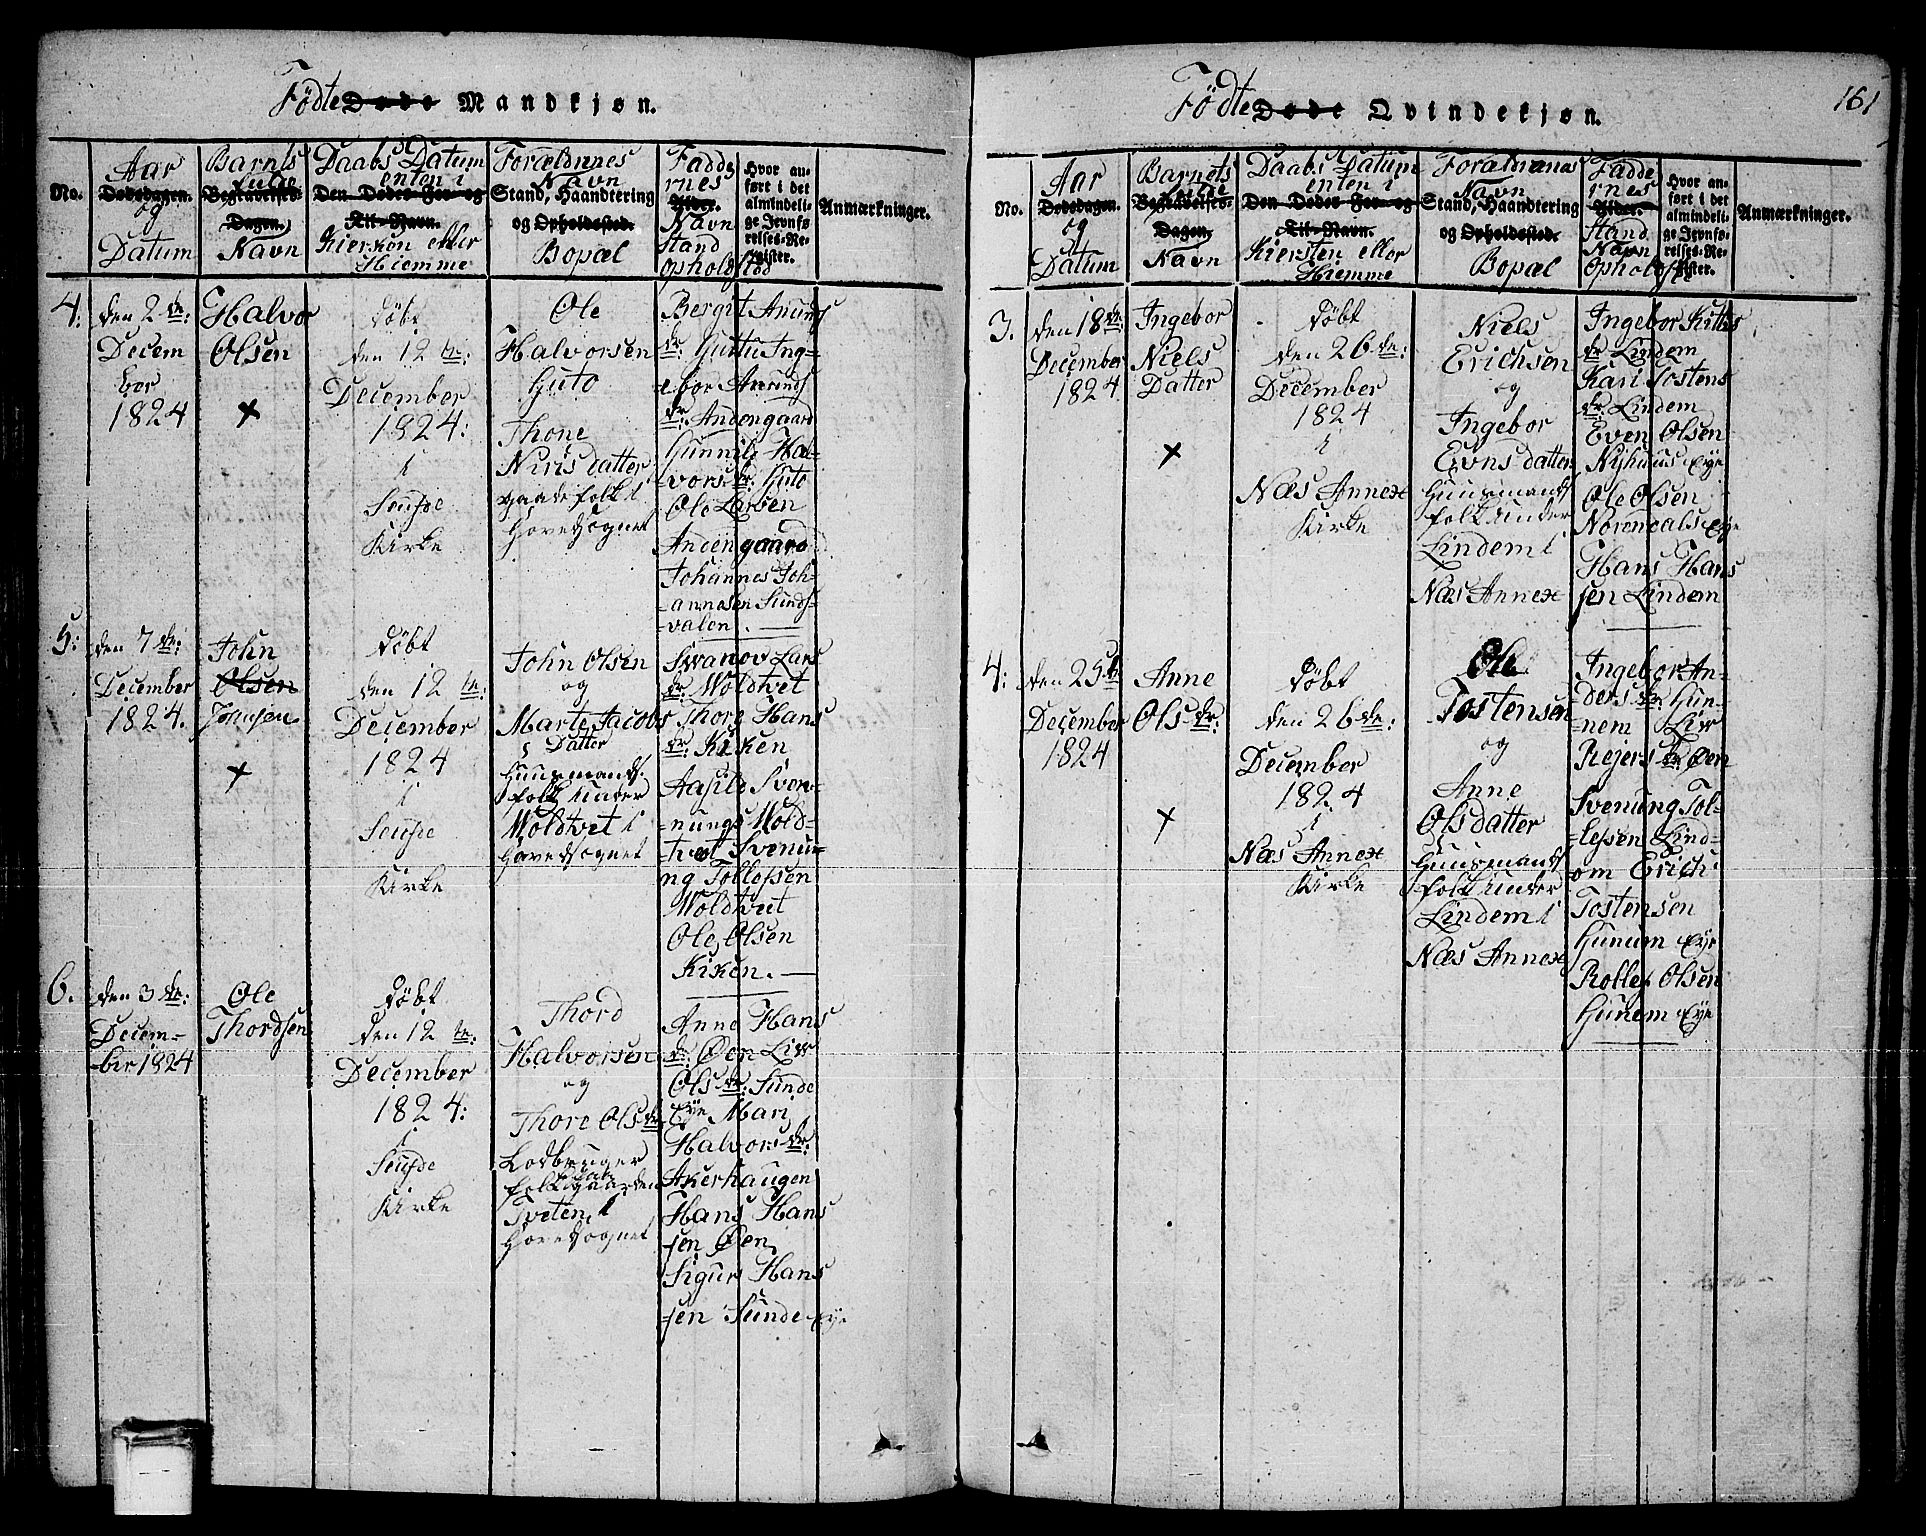 Födte Døde Mandkjøn.
No.
Aar
Dødsdagen.
og
Datum
Barnets
fulde
Begravelses-
Dagen.
Navn
Daabs Datum
enten i
Den Dødes For- og
Til-Navn.
Kierken eller
Hiemme
Forældrenes
Navn
Stand, Haandtering
og Opholdssted.
Bopæl
Fadde
rnes
Alder.
Navn
Stand
Opholdsted
Hvor an-
ført i det
almindeli-
ge Jevnfø-
relses-Re-
gister.
Anmærkninger.
4:
den 2 de:
Decem
ber
1824
Halvor
Olsen
+
døbt
den 12 te:
December
1824:
i
Seufde
Kirke
Ole
Halvorsen
Guto
Thone
Niris datter
gaardfolk i
Hovedsognet
Bergit Anunds
dr: Guttu Ing-
ebor Anunds
dr: Andengaard
Gunnild Hal
vors dr: Guto
Ole Larsen
Andengaard
Johannes Joh-
-annesen Sunds-
-valen.
5:
den 7 de:
December
1824.
John
Olsen
Johnsen
+
døbt
den 12 te:
December
1824
i
Seufde
Kirke
John Olsen
og
Marte Jacobs
Datter
Huusmands-
folk under
Woldtvet i
Hovedsognet
Swanov Lars
dr: Woldtvet
Thore Hans
dr: Kiken
Aasild Sven-
-nungs Wold-
-tvet Svenu-
ng Tollofsen
Woldtvet
Ole Olsen
Kiken.
6.
den 3 de:
Decem-
-ber 1824
Ole
Thordsen
døbt
den 12 te:
December
1824:
i
Seufde
Kirke
Thord
Halvorsen
og
Thore Ols dr
Lodbruger
folk i gaarden
Tveten i
Hovedsognet
Anne Hans
dr: Øen Liv
Ols dr: Sunde
Eye Mari
Halvors dr:
Akerhaugen
Hans Hans
sen Øen
Sigurs Hans
-sen Sunde eye
Födte Døde Qvindekjøn.
161
No.
Aar
Dødsdagen.
og
Datum
Barnets
fulde
Begravelses-
Dagen.
Navn
Daabs Datum
enten i
Den Dødes For- og
Til-Navn.
Kiersten eller
Hiemme
Forældrenes
Navn
Stand, Haandtering
og Opholdssted.
Bopæl
Fadde
rnes
Alder.
Stand
Navn
Opholdsst
Hvor an-
ført i det
almindeli-
ge Jevnfø-
relses-Re-
gister.
Anmærkninger.
3.
den 18 de
December
1824
Ingebor
Niels
Datter
+
døbt
den 26 de:
December
1824
i
Næs Annex
Kirke
Niels
Erichsen
og
Ingebor
Evns datter
Huusmands
folk under
Lindem i
Næs Annex
Ingebor Kittils
dr Lindem
Kari Tostens
dr: Lindem
Even Olsen
Nyhuus eye
Ole Olsen
Norendals eye
Hans Hans
sen Lindem
4:
den 25 de
December
1824
Anne
Ols dr:
+
døbt
den 26 de:
December
1824
i
Næs Annex
Kirke
Ole
Tostensen
og
Anne
Ols datter
Huusmands
folk under
Lindem i
Næs Annex
Ingebor An-
Ders dr: Hun-
nem Liv
Rejers dr Øen
Svenung Tol-
-lefsen Lind-
om Erich
Tostensen
Hunum Eye
Rollef Olsen
Hunem Eye